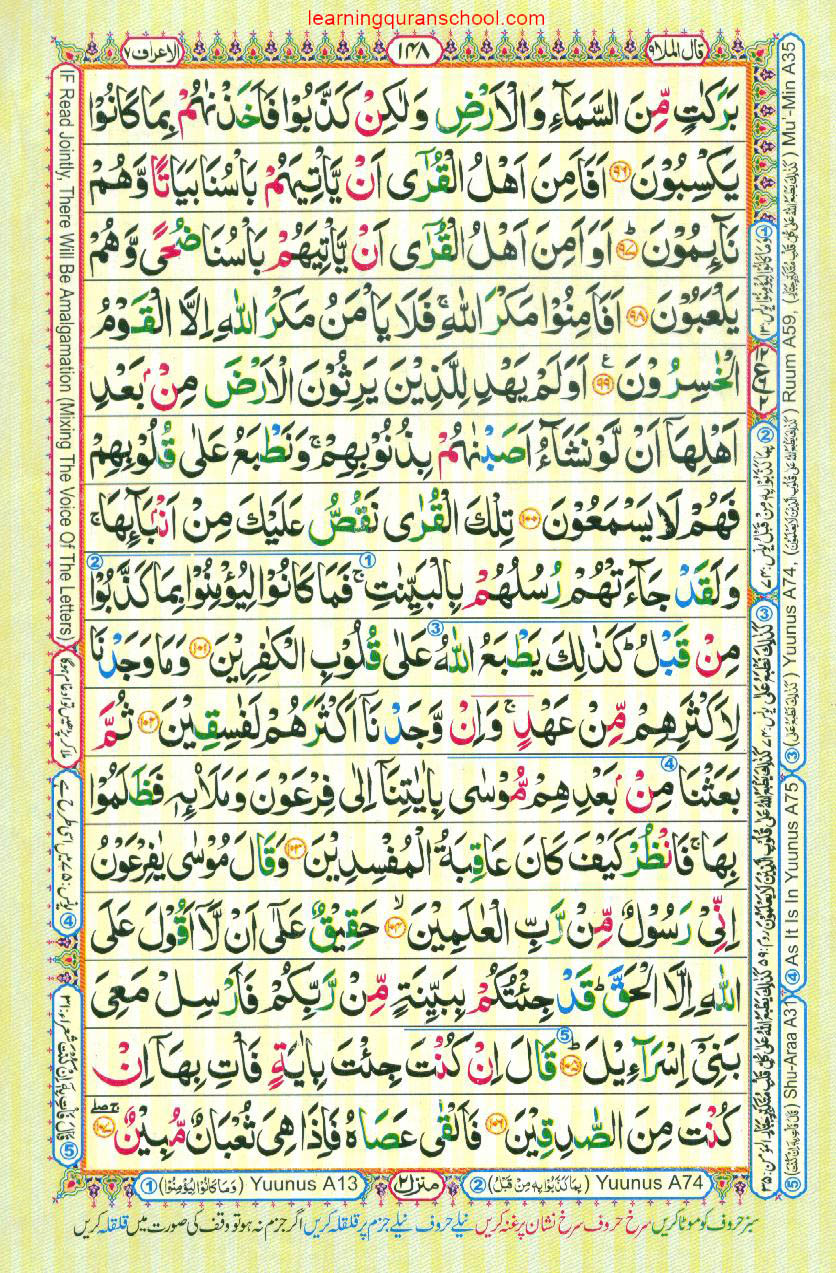 learningquranschool.com
قال الملا ٩
١٤٨
الاعراف ٧
بَرَكٰتٍ مِّنَ السَّمَآءِ وَالْاَرْضِ وَلٰكِنْ كَذَّبُوْا فَاَخَذْنٰهُمْ بِمَا كَانُوْا
يَكْسِبُوْنَ ٩٦ اَفَاَمِنَ اَهْلُ الْقُرٰٓى اَنْ يَّاْتِيَهُمْ بَاْسُنَا بَيَاتًا وَّهُمْ
نَآئِمُوْنَ ؕ ٩٧ اَوَاَمِنَ اَهْلُ الْقُرٰٓى اَنْ يَّاْتِيَهُمْ بَاْسُنَا ضُحًى وَّهُمْ
يَلْعَبُوْنَ ٩٨ اَفَاَمِنُوْا مَكْرَ اللّٰهِ ۚ فَلَا يَاْمَنُ مَكْرَ اللّٰهِ اِلَّا الْقَوْمُ
الْخٰسِرُوْنَ ٩٩ ع اَوَلَمْ يَهْدِ لِلَّذِيْنَ يَرِثُوْنَ الْاَرْضَ مِنْۢ بَعْدِ
اَهْلِهَاۤ اَنْ لَّوْ نَشَآءُ اَصَبْنٰهُمْ بِذُنُوْبِهِمْ ۚ وَنَطْبَعُ عَلٰى قُلُوْبِهِمْ
فَهُمْ لَا يَسْمَعُوْنَ ١٠٠ تِلْكَ الْقُرٰى نَقُصُّ عَلَيْكَ مِنْ اَنْۢبَآئِهَا ۚ
وَلَقَدْ جَآءَتْهُمْ رُسُلُهُمْ بِالْبَيِّنٰتِ ۚ فَمَا كَانُوْا لِيُؤْمِنُوْا بِمَا كَذَّبُوْا
مِنْ قَبْلُ ؕ كَذٰلِكَ يَطْبَعُ اللّٰهُ عَلٰى قُلُوْبِ الْكٰفِرِيْنَ ١٠١ وَمَا وَجَدْنَا
لِاَكْثَرِهِمْ مِّنْ عَهْدٍ ۚ وَاِنْ وَّجَدْنَاۤ اَكْثَرَهُمْ لَفٰسِقِيْنَ ١٠٢ ثُمَّ
بَعَثْنَا مِنْۢ بَعْدِهِمْ مُّوْسٰى بِاٰيٰتِنَاۤ اِلٰى فِرْعَوْنَ وَمَلَا۟ئِهٖ فَظَلَمُوْا
بِهَا ۚ فَانْظُرْ كَيْفَ كَانَ عَاقِبَةُ الْمُفْسِدِيْنَ ١٠٣ وَقَالَ مُوْسٰى يٰفِرْعَوْنُ
اِنِّيْ رَسُوْلٌ مِّنْ رَّبِّ الْعٰلَمِيْنَ ۙ ١٠٤ حَقِيْقٌ عَلٰٓى اَنْ لَّاۤ اَقُوْلَ عَلَى
اللّٰهِ اِلَّا الْحَقَّ ؕ قَدْ جِئْتُكُمْ بِبَيِّنَةٍ مِّنْ رَّبِّكُمْ فَاَرْسِلْ مَعِيَ
بَنِيْۤ اِسْرَآءِيْلَ ؕ ١٠٥ قَالَ اِنْ كُنْتَ جِئْتَ بِاٰيَةٍ فَاْتِ بِهَاۤ اِنْ
كُنْتَ مِنَ الصّٰدِقِيْنَ ١٠٦ فَاَلْقٰى عَصَاهُ فَاِذَا هِيَ ثُعْبَانٌ مُّبِيْنٌ ۚۖ ١٠٧
① (وَمَا كَانُوْا لِيُؤْمِنُوْا) Yuunus A13
منزل ٢
② (بِمَا كَذَّبُوْا بِهٖ مِنْ قَبْلُ) Yuunus A74
سبز حروف کو موٹا کریں سرخ حروف سرخ نشان پر غنہ کریں نیلے حروف نیلے جزم پر قلقلہ کریں اگر جزم نہ ہو تو وقف کی صورت میں قلقلہ کریں
IF Read Jointly, There Will Be Amalgamation (Mixing The Voice Of The Letters)
③ (كَذٰلِكَ نَطْبَعُ عَلٰى) Yuunus A74, Ruum A59, Mu'-Min A35
④ As It Is In Yuunus A75
⑤ (قَالَ فَاْتِ بِهٖۤ اِنْ كُنْتَ) Shu-Araa A31